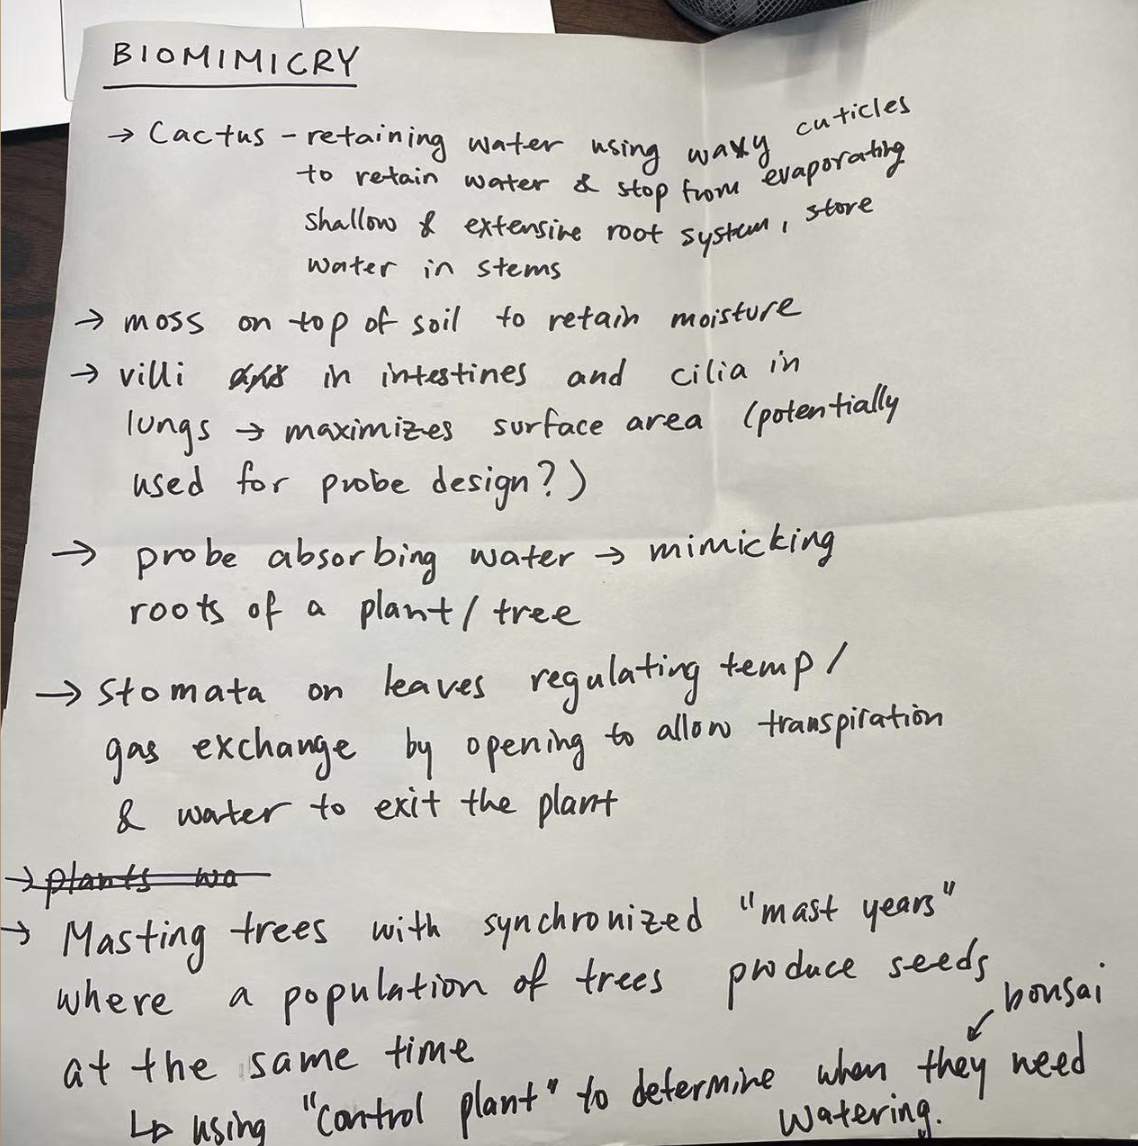 BIOMIMICRY
→ Cactus - retaining water using waxy cuticles
to retain water & stop from evaporating
shallow & extensive root system, store
water in stems
→ moss on top of soil to retain moisture
→ villi in intestines and cilia in
lungs → maximizes surface area (potentially
used for probe design?)
→ probe absorbing water → mimicking
roots of a plant/tree
→ stomata on leaves regulating temp/
gas exchange by opening to allow transpiration
& water to exit the plant
→ plants wa
→ Masting trees with synchronized "mast years"
where a population of trees produce seeds
bonsai
at the same time
↳ using "control plant" to determine when they need
watering.